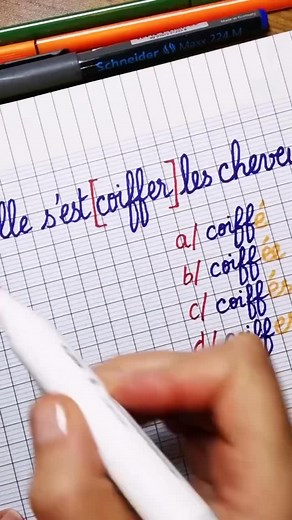 Schneider Maxx 224 M
lle s'est [coiffer] les cheveu
a/ coiffé
b/ coiffée
c/ coiffés
d/ coiffer